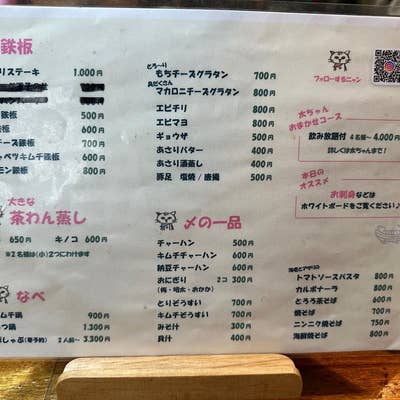 鉄板
リステーキ 1.000円
鉄板 500円
鉄板 600円
チーズ鉄板 700円
ャベツキムチ鉄板 600円
モン鉄板 800円
とろ〜り
もちチーズグラタン 700円
具だくさん
マカロニチーズグラタン 800円
エビチリ 800円
エビマヨ 800円
ギョウザ 500円
あさりバター 400円
あさり酒蒸し 400円
豚足 塩焼 / 唐揚 500円
フォローするニャン
太ちゃん
おまかせコース
飲み放題付 4名様〜 4,000円
詳しくは太ちゃんまで!
本日の
オススメ
お刺身などは
ホワイトボードをご覧ください♪
大きな
茶わん蒸し
650円 キノコ 600円
※2名様は(小)2つにわけます
なべ
ムチ鍋 900円
つ鍋 1.300円
ゃぶ(要予約) 2人前〜 3.300円
〆の一品
チャーハン 500円
キムチチャーハン 600円
納豆チャーハン 600円
おにぎり 2コ 300円
(梅・明太・おかか)
とりぞうすい 700円
キムチぞうすい 700円
みそ汁 300円
貝汁 400円
トマトソースパスタ 800円
カルボナーラ 800円
とろろ茶そば 600円
焼そば 700円
ニンニク焼そば 750円
海鮮焼そば 800円